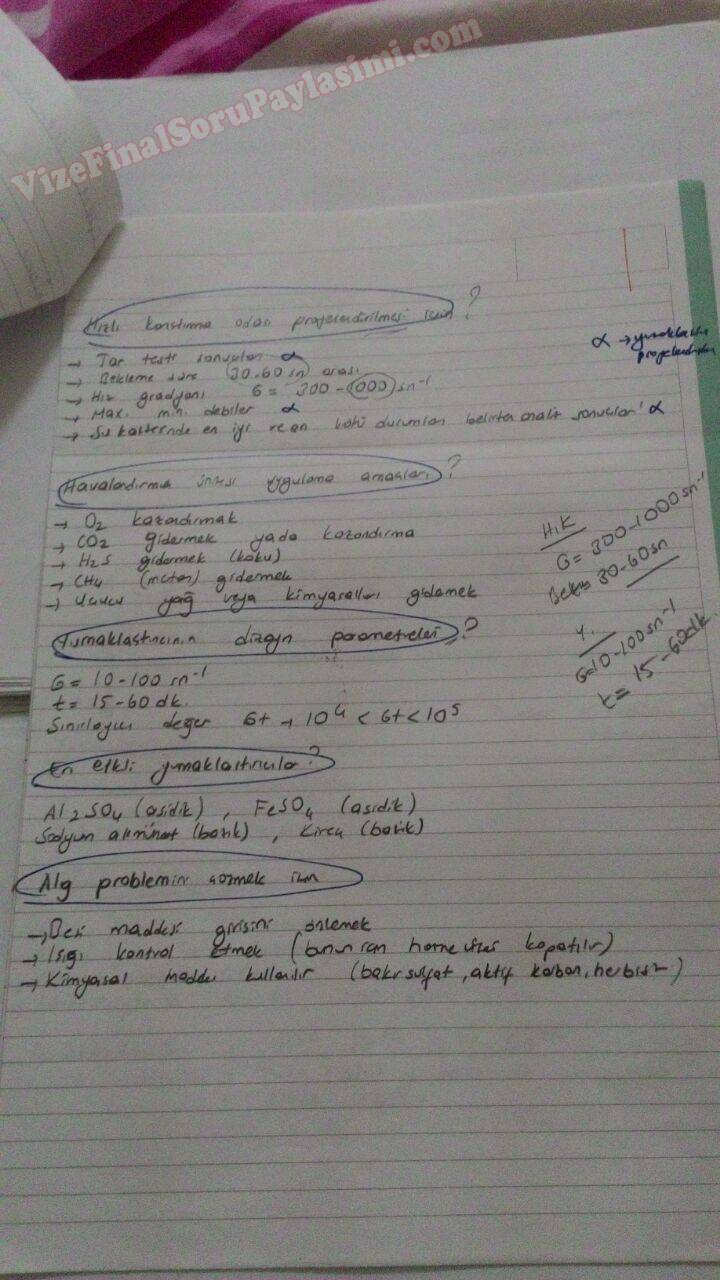 VizeFinalSoruPaylasimi.com
Hızlı karıştırma odası projelendirilmesi için?
→ Jar testi sonuçları α
→ Bekleme süre (30-60 sn) arası
→ Hız gradyanı G = 300 - 1000 sn⁻¹
→ Max. min. debiler α
→ Su kalitesinde en iyi ve en kötü durumları belirten analiz sonuçları α
α → yumaklaştırıcı
projelendirilen
Havalandırma ünitesi uygulama amaçları?
→ O₂ kazandırmak
→ CO₂ gidermek yada kazandırma
→ H₂S gidermek (koku)
→ CH₄ (metan) gidermek
→ Uçucu yağ veya kimyasalları gidermek
H.K
G = 300-1000 sn⁻¹
Bek = 30-60 sn
Yumaklaştırıcının dizayn parametreleri?
G = 10-100 sn⁻¹
t = 15-60 dk.
Sınırlayıcı değer Gt → 10⁴ < Gt < 10⁵
Y.
G=10-100 sn⁻¹
t = 15-60 dk
En etkili yumaklaştırıcılar?
Al₂SO₄ (asidik), FeSO₄ (asidik)
Sodyum alüminat (bazik), Kireç (bazik)
Alg problemini çözmek için
→ Besi maddesi girişini önlemek
→ Işığı kontrol etmek (bunun için hazne üstü kapatılır)
→ Kimyasal madde kullanılır (bakır sülfat, aktif karbon, herbisit)